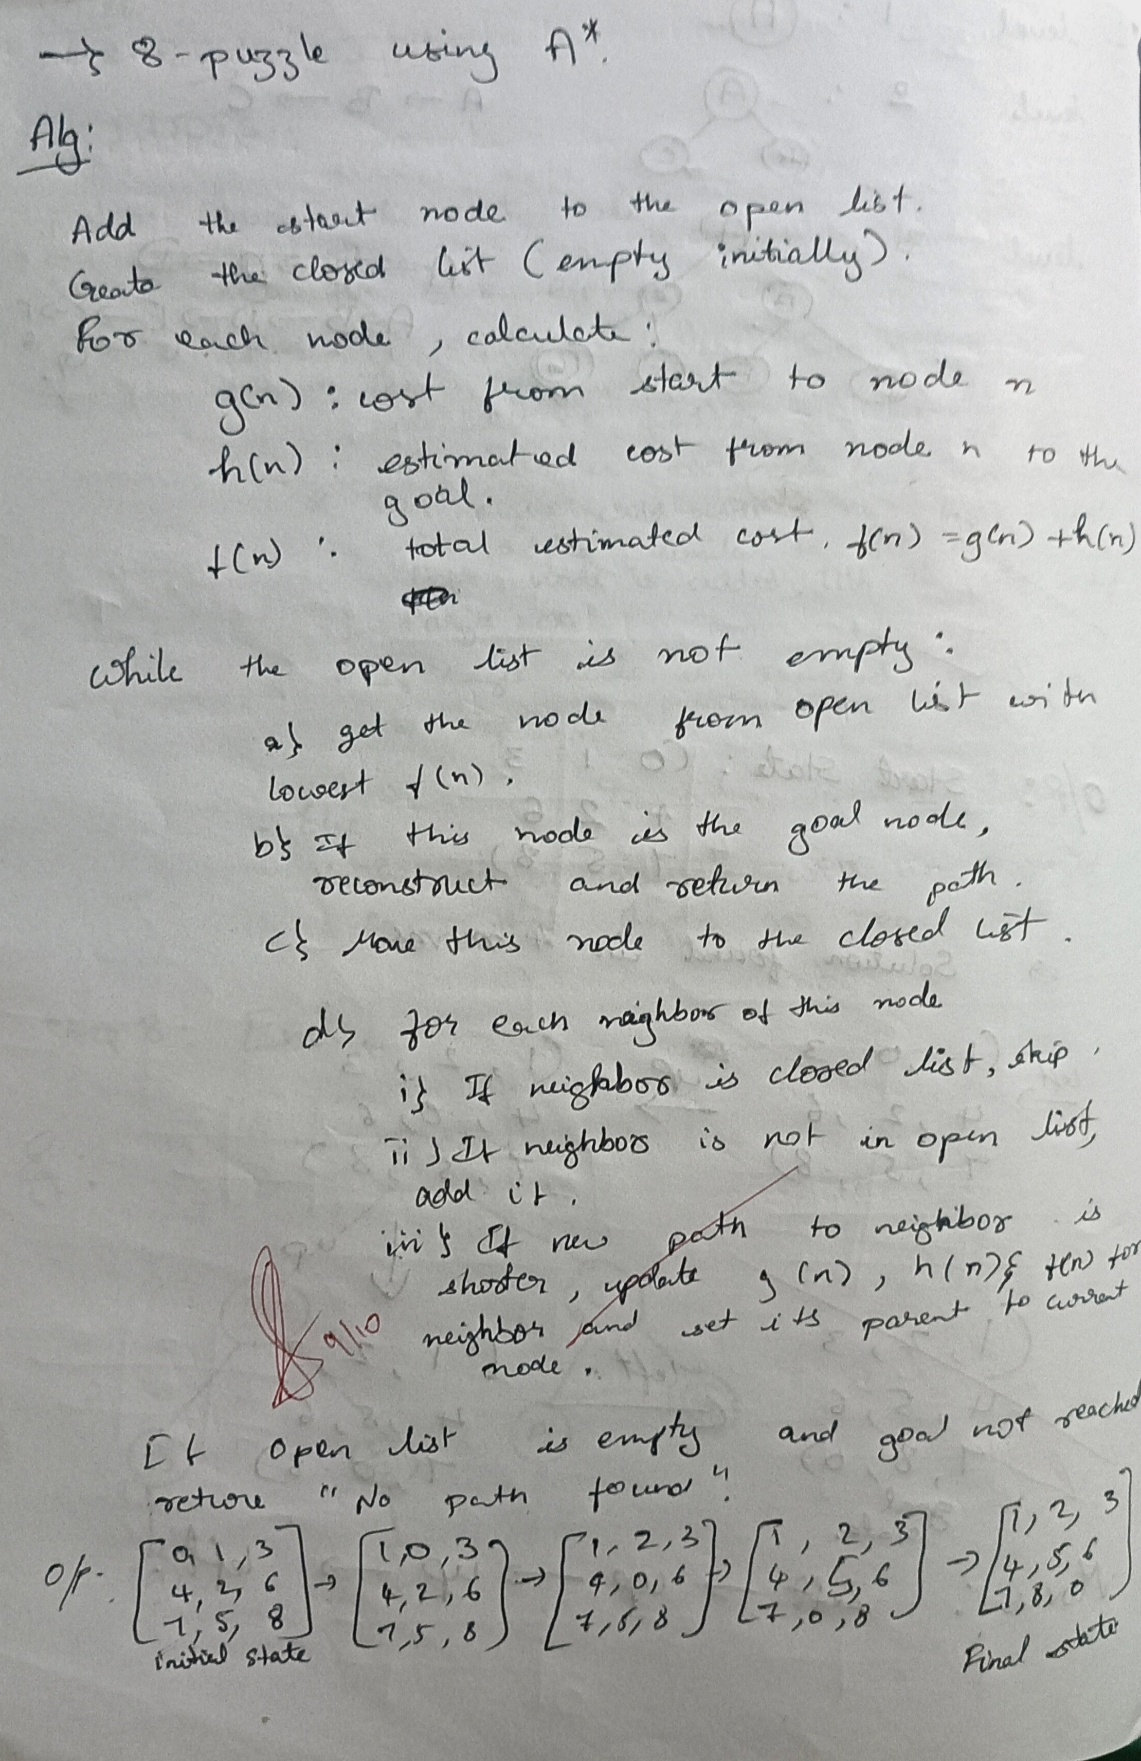 → 8-puzzle using A*.
Alg:
Add the start node to the open list.
Create the closed list (empty initially).
For each node, calculate:
g(n) : cost from start to node n
h(n) : estimated cost from node n to the
goal.
f(n) : total estimated cost. f(n) = g(n) + h(n)
while the open list is not empty:
a} get the node from open list with
lowest f(n).
b} If this node is the goal node,
reconstruct and return the path.
c} Move this node to the closed list.
d} for each neighbor of this node
i} If neighbor is closed list, skip.
ii} If neighbor is not in open list,
add it.
iii} If new path to neighbor is
shorter, update g(n), h(n) & f(n) for
neighbor and set its parent to current
node.
9/10
If open list is empty and goal not reached
return "No path found".
O/p: [0, 1, 3 → [1, 0, 3 → [1, 2, 3 → [1, 2, 3 → [1, 2, 3
4, 2, 6 4, 2, 6 4, 0, 6 4, 5, 6 4, 5, 6
7, 5, 8] 7, 5, 8] 7, 5, 8] 7, 0, 8] 7, 8, 0]
initial state Final state